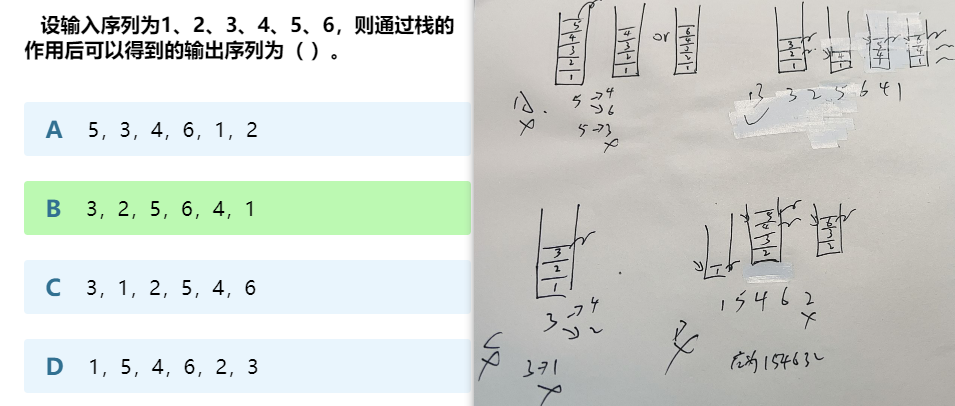 设输入序列为1、2、3、4、5、6，则通过栈的
作用后可以得到的输出序列为（ ）。
A 5，3，4，6，1，2
B 3，2，5，6，4，1
C 3，1，2，5，4，6
D 1，5，4，6，2，3
5
4
3
2
1
4
3
2
1
or
6
4
3
2
1
A.
×
5→4
→6
5→3
×
3
2
1
4
1
5
4
1
6
4
1
B
✓
3 2 5 6 4 1
3
2
1
3→4
→2
C
×
3→1
×
1
5
4
3
2
6
3
2
1 5 4 6 2
×
D
×
应为154632